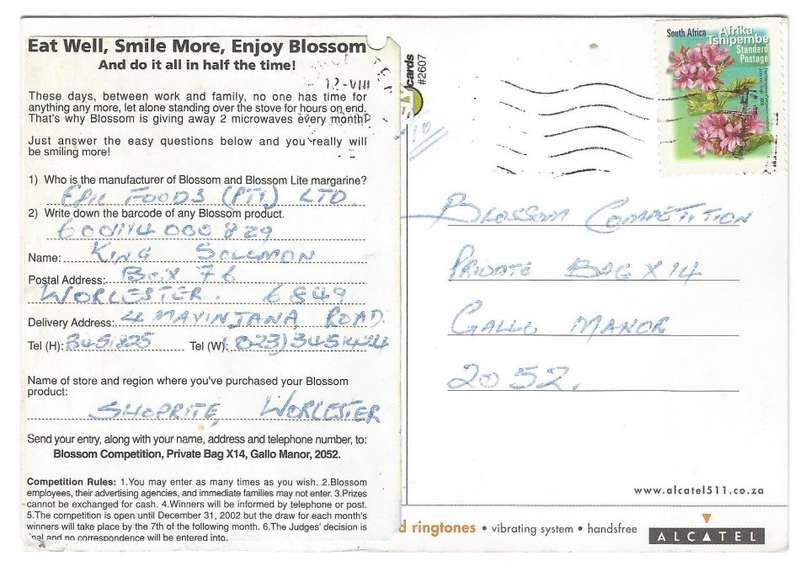 Eat Well, Smile More, Enjoy Blossom
And do it all in half the time!
These days, between work and family, no one has time for
anything any more, let alone standing over the stove for hours on end.
That's why Blossom is giving away 2 microwaves every month!
Just answer the easy questions below and you really will
be smiling more!
1) Who is the manufacturer of Blossom and Blossom Lite margarine?
EPIC FOODS (PTY) LTD.
2) Write down the barcode of any Blossom product.
600114000829
Name: KING SOLOMON
Postal Address: BOX 76
WORCESTER. 6849
Delivery Address: 4 MAVINJANA ROAD
Tel (H): 3451825 Tel (W): (023)3451424
Name of store and region where you've purchased your Blossom
product:
SHOPRITE, WORCESTER
Send your entry, along with your name, address and telephone number, to:
Blossom Competition, Private Bag X14, Gallo Manor, 2052.
Competition Rules: 1.You may enter as many times as you wish. 2.Blossom
employees, their advertising agencies, and immediate families may not enter. 3.Prizes
cannot be exchanged for cash. 4.Winners will be informed by telephone or post.
5.The competition is open until December 31, 2002 but the draw for each month's
winners will take place by the 7th of the following month. 6.The Judges' decision is
final and no correspondence will be entered into.
12-VIII
cards
#2607
South Africa
Afrika
Tshipembe
Standard
Postage
BLOSSOM COMPETITION
PRIVATE BAG X14
GALLO MANOR
2052.
www.alcatel511.co.za
d ringtones • vibrating system • handsfree
ALCATEL